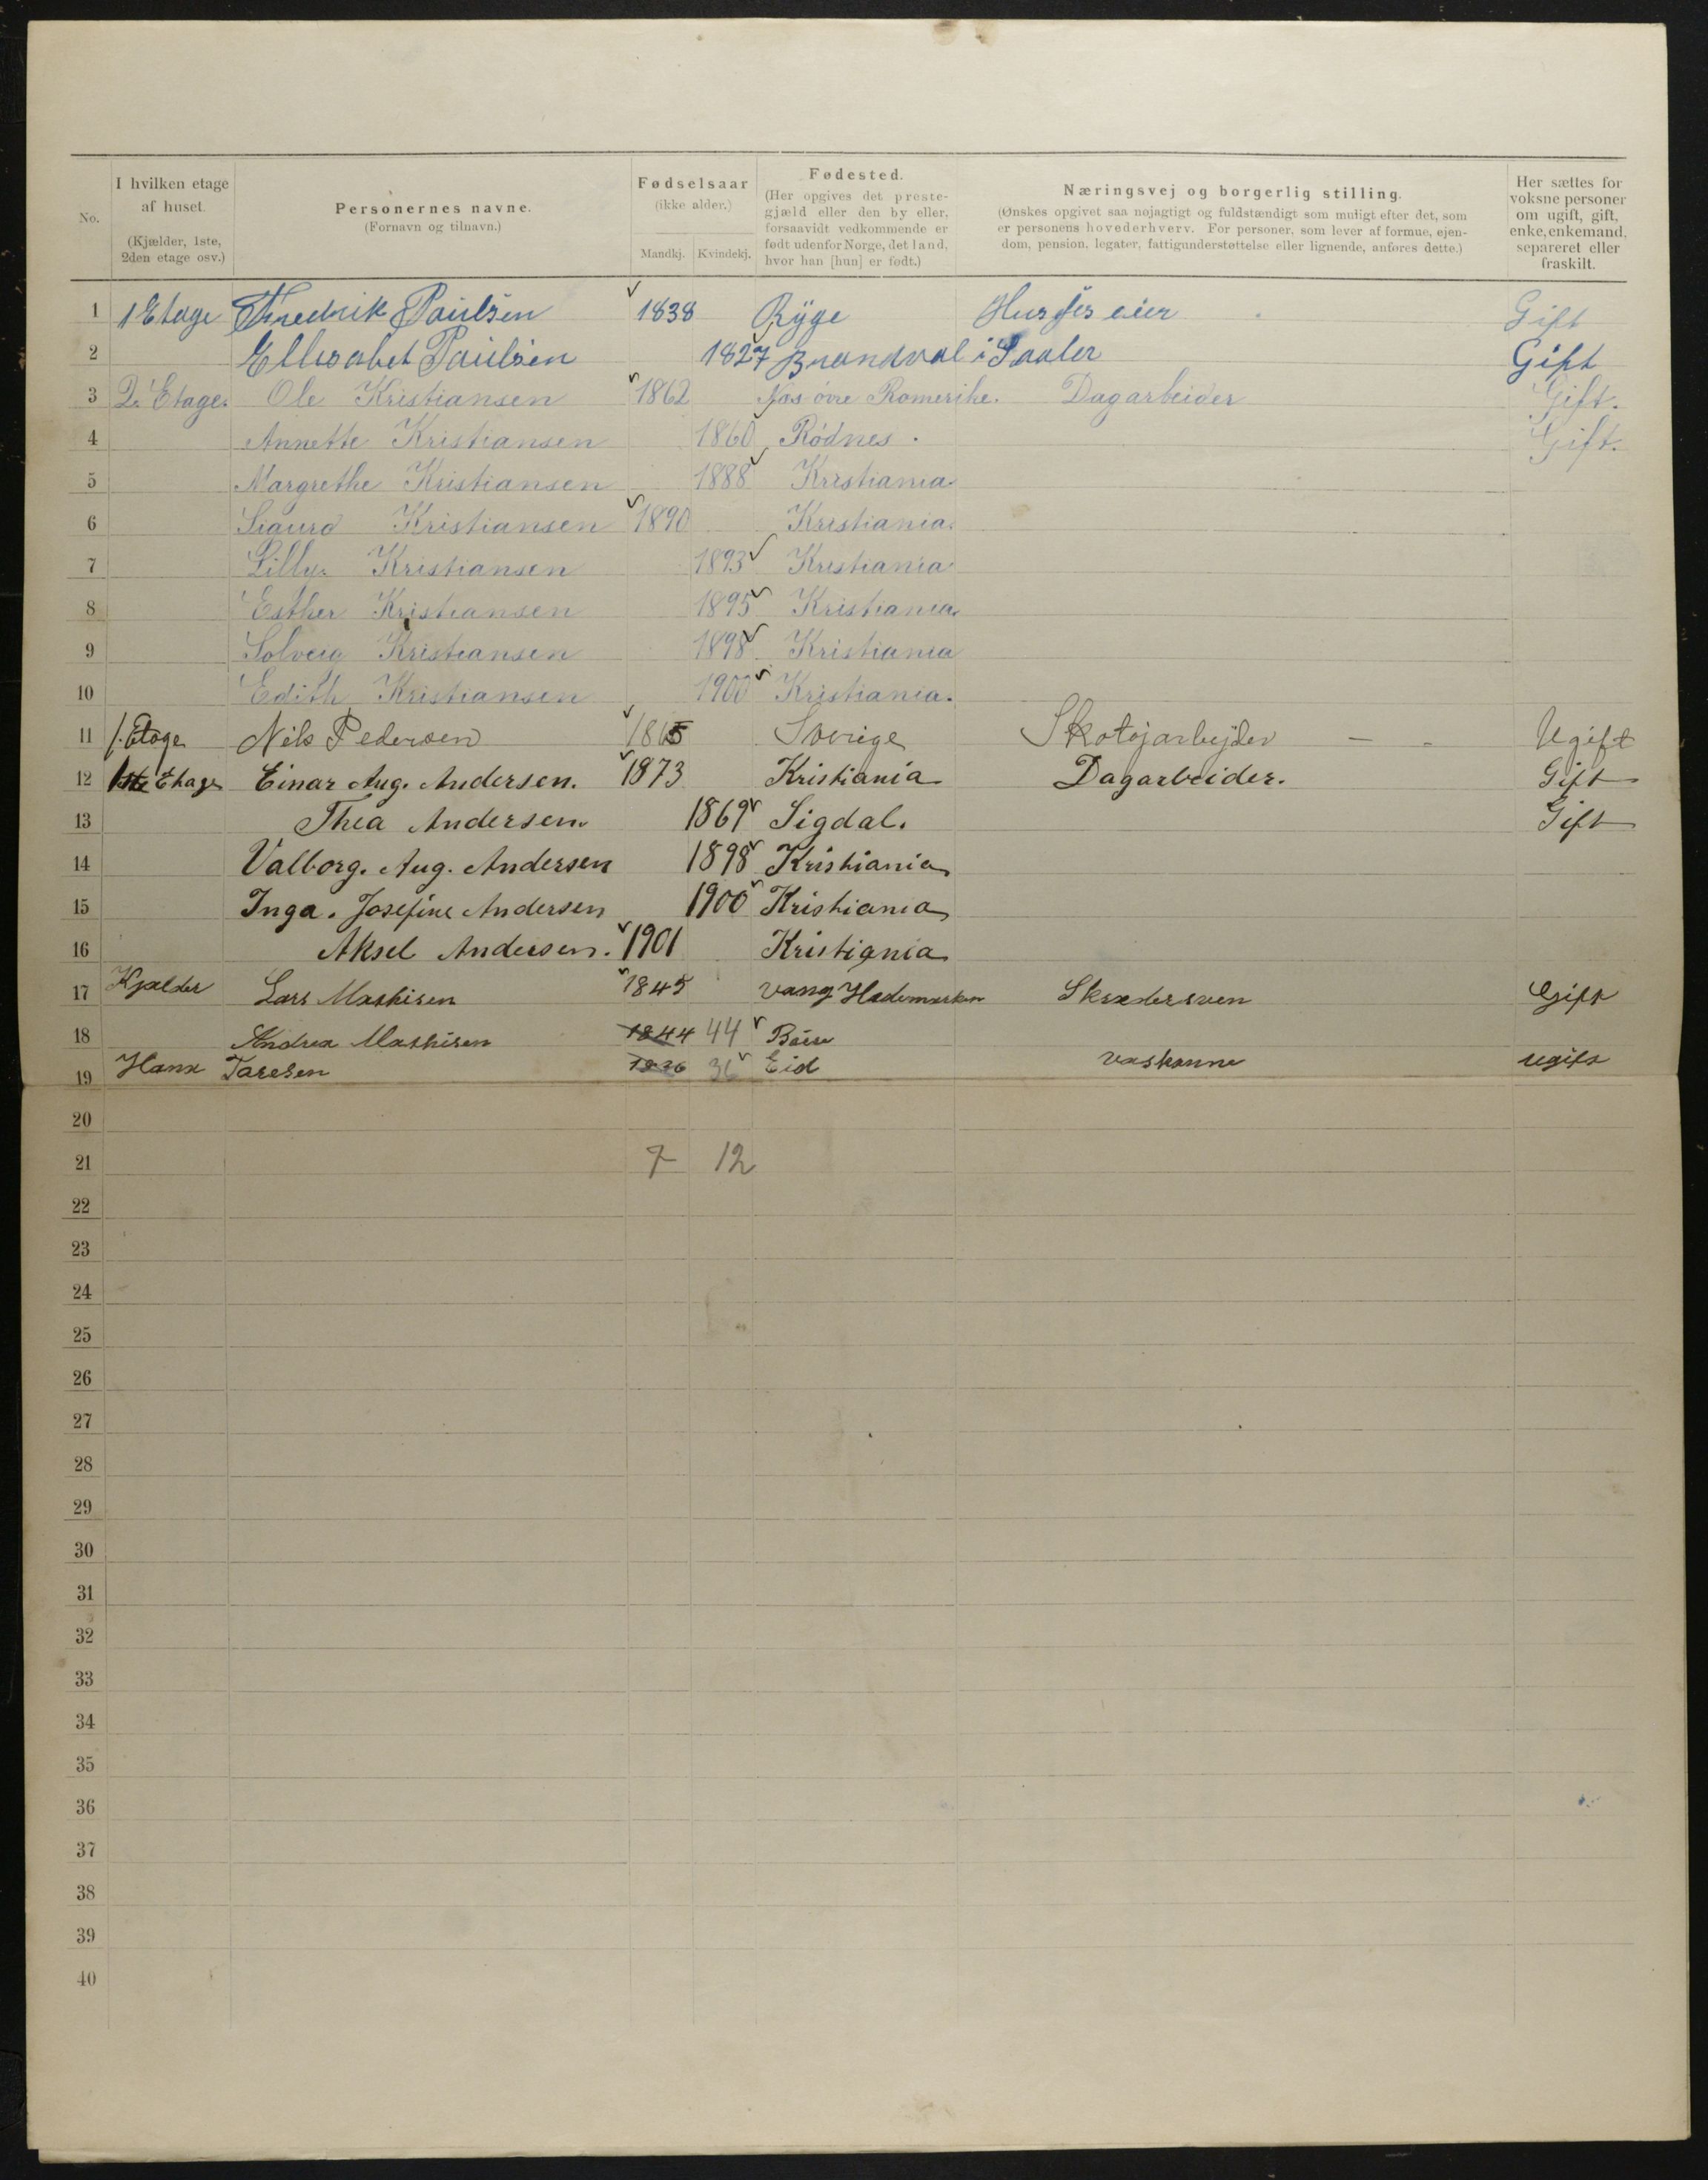 No.
I hvilken etage af huset. (Kjælder, 1ste, 2den etage osv.)
Personernes navne. (Fornavn og tilnavn.)
Fødselsaar (ikke alder.) Mandkj. Kvindekj.
Fødested. (Her opgives det prestegjæld eller den by eller, forsaavidt vedkommende er født udenfor Norge, det land, hvor han [hun] er født.)
Næringsvej og borgerlig stilling. (Ønskes opgivet saa nøjagtigt og fuldstændigt som muligt efter det, som er personens hovederhverv. For personer, som lever af formue, ejendom, pension, legater, fattigunderstøttelse eller lignende, anføres dette.)
Her sættes for voksne personer om ugift, gift, enke, enkemand, separeret eller fraskilt.
1 1 Etage Fredrik Paulsen 1838 Rÿge eier Gift
2 Ellisabet Paulsen 1827 Brandval i Gift
3 2. Etage. Ole Kristiansen 1862 Nes övre Romerike. Dagarbeider Gift.
4 Annette Kristiansen 1860 Rödnes. Gift.
5 Margrethe Kristiansen 1888 Kristiania
6 Sigurd Kristiansen 1890 Kristiania.
7 Lilly. Kristiansen 1893 Kristiania
8 Esther Kristiansen 1895 Kristiania.
9 Solveig Kristiansen 1898 Kristiania
10 Edith Kristiansen 1900 Kristiania.
11 1. Etage Nils Pedersen 1865 Sverige Skotøjarbejder — - Ugift
12 1ste Etage Einar Aug. Andersen. 1873 Kristiania Dagarbeider. Gift
13 Thea Andersen. 1869 Sigdal. Gift
14 Valborg. Aug. Andersen 1898 Kristiania
15 Inga. Josefine Andersen 1900 Kristiania
16 Aksel Andersen. 1901 Kristiania
17 Kjælder Lars Mathisen 1845 Vang Hedemarken Skrædersven Gift
18 Andrea Mathisen 1844 44
19 Hans 36 Eid vaskkonne ugift
20
21 7 12
22
23
24
25
26
27
28
29
30
31
32
33
34
35
36
37
38
39
40